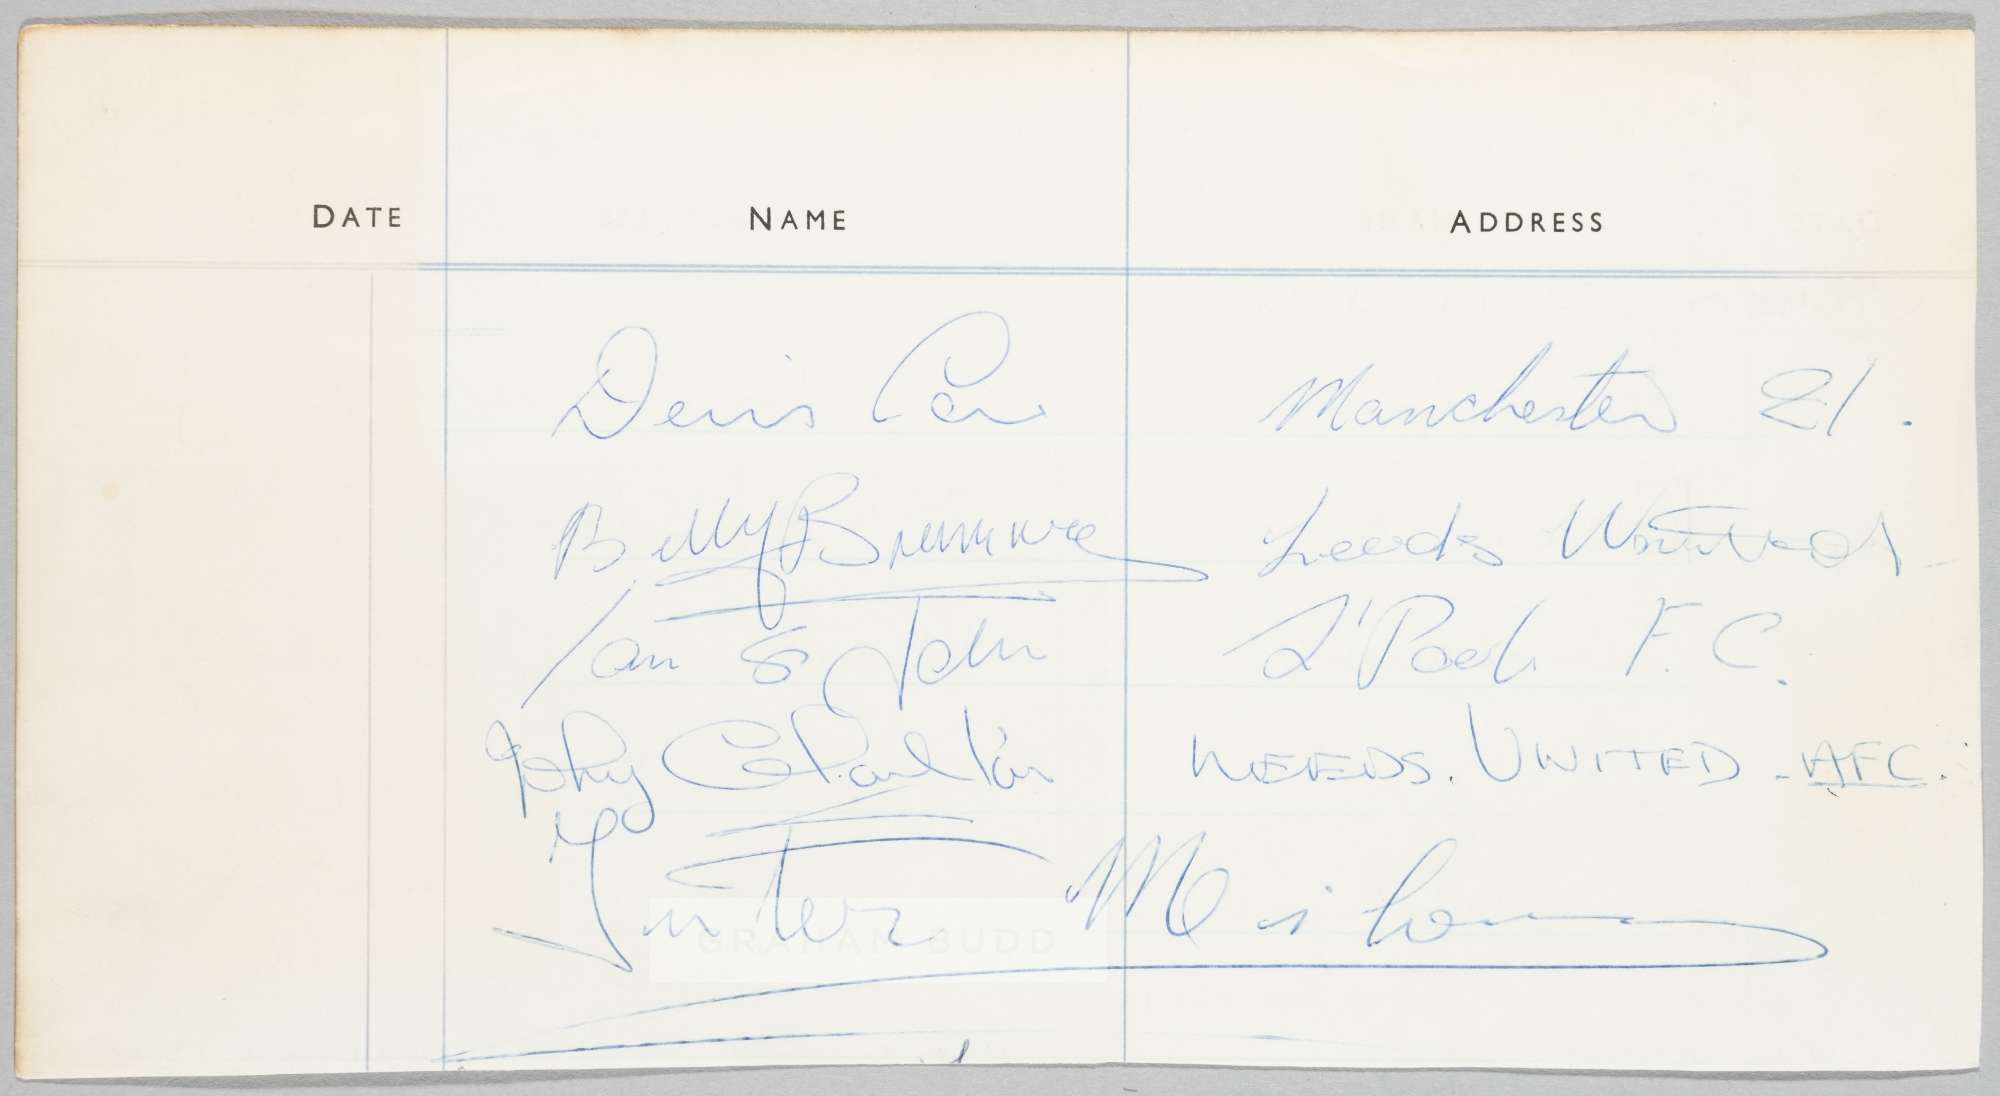 DATE NAME ADDRESS
Denis Law Manchester 21.
Billy Bremner Leeds United
Ian St John L'Pool F.C.
LEEDS. UNITED - AFC.
Inter Milan
GRAHAM BUDD